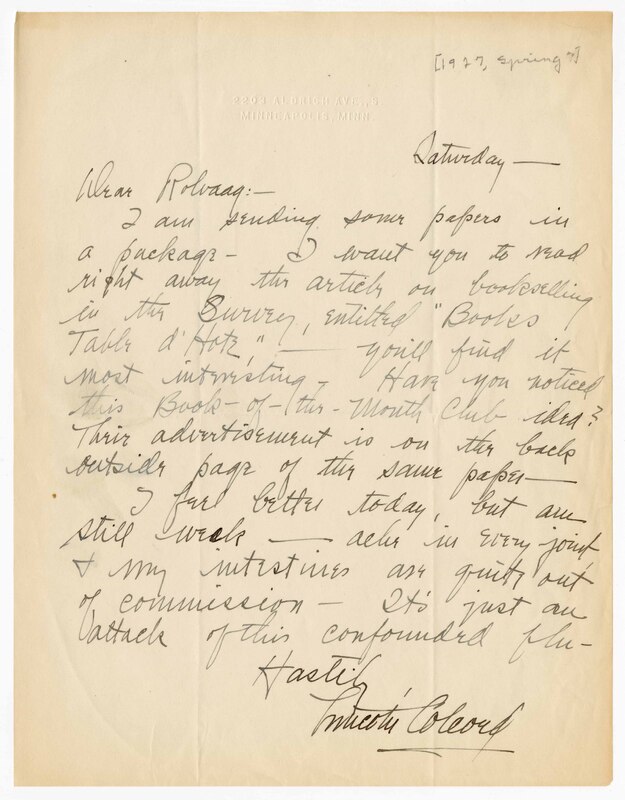 [1927, Spring?]
2203 ALDRICH AVE., S.
MINNEAPOLIS, MINN.
Saturday —
Dear Rolvaag:—
I am sending some papers in
a package — I want you to read
right away the article on bookselling
in the Survey, entitled "Books
Table d'Hote," — you'll find it
most interesting. Have you noticed
this Book-of-the-Month Club idea?
Their advertisement is on the back
outside page of the same paper —
I feel better today, but am
still weak — ache in every joint
& my intestines are quite out
of commission — It's just an
attack of this confounded flu —
Hastily,
Lincoln Colcord